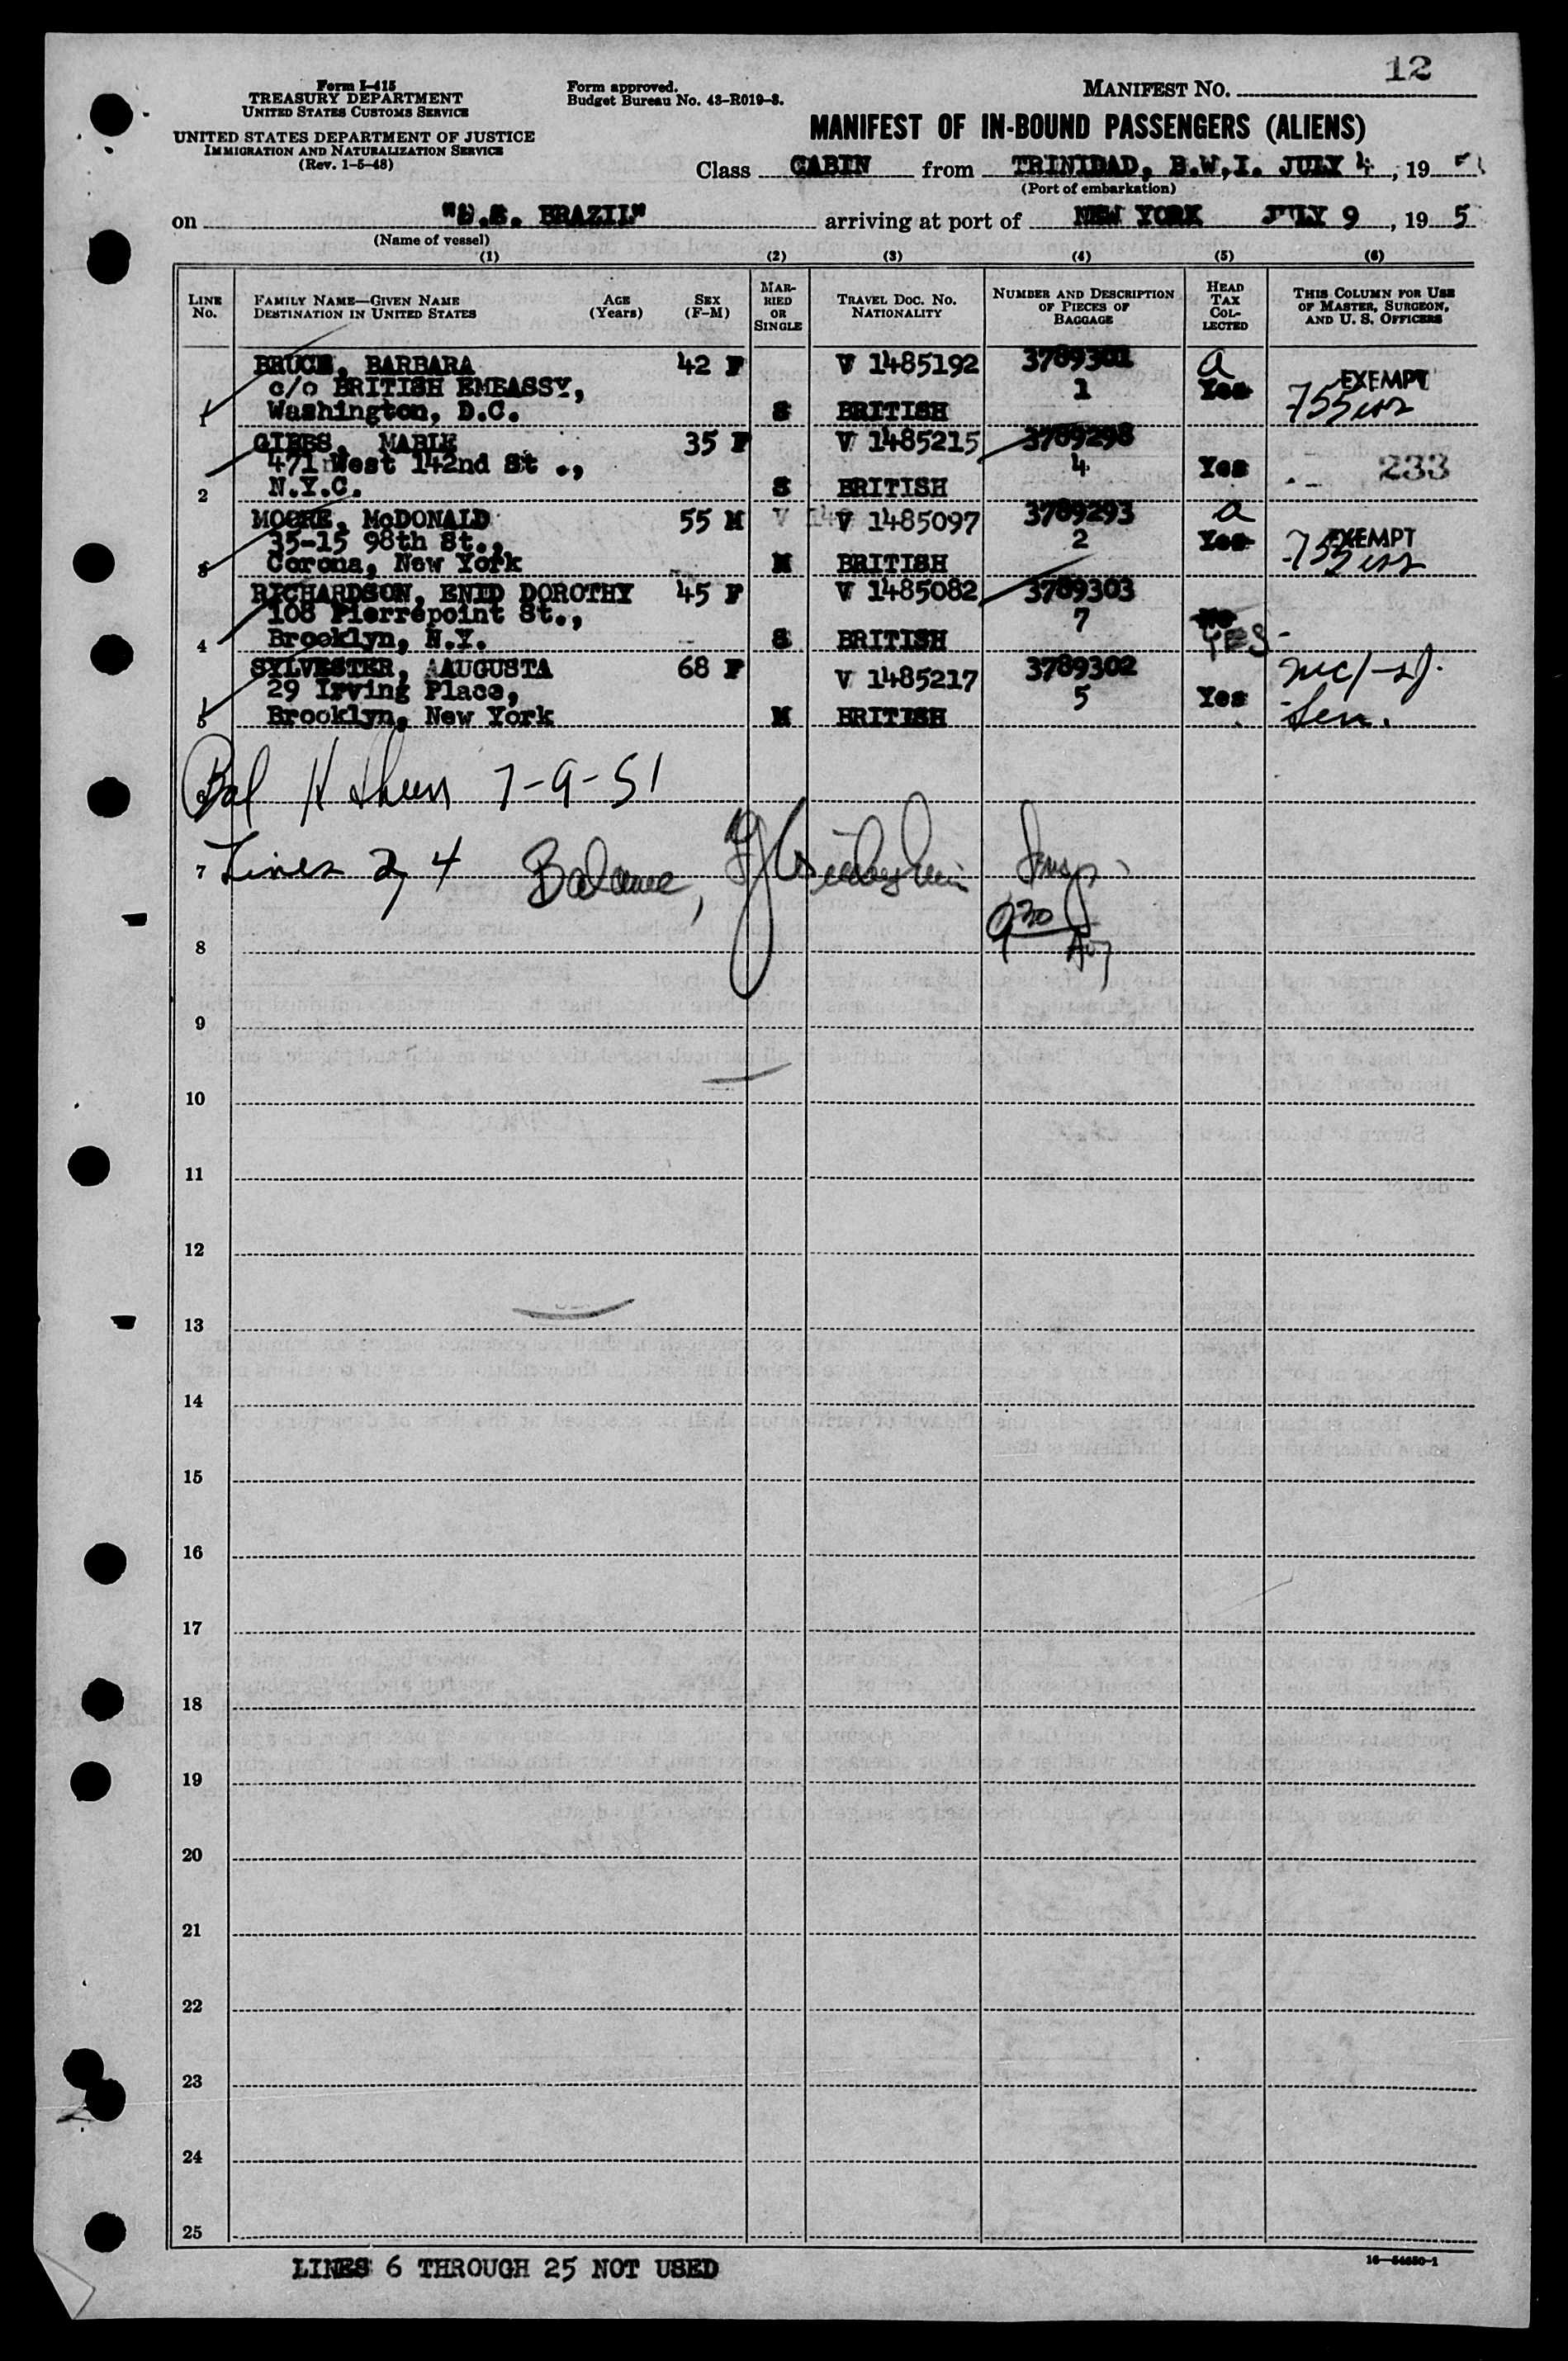 12
Form I-415
TREASURY DEPARTMENT
UNITED STATES CUSTOMS SERVICE
UNITED STATES DEPARTMENT OF JUSTICE
IMMIGRATION AND NATURALIZATION SERVICE
(Rev. 1-5-48)
Form approved.
Budget Bureau No. 43-R019-3.
MANIFEST NO.
MANIFEST OF IN-BOUND PASSENGERS (ALIENS)
Class CABIN from TRINIDAD, B.W.I. JULY 4, 19 5
(Port of embarkation)
on "S.S. BRAZIL" arriving at port of NEW YORK JULY 9, 19 5
(Name of vessel)
(1) (2) (3) (4) (5) (6)
LINE No. FAMILY NAME—GIVEN NAME DESTINATION IN UNITED STATES AGE (Years) SEX (F-M) MARRIED OR SINGLE TRAVEL DOC. NO. NATIONALITY NUMBER AND DESCRIPTION OF PIECES OF BAGGAGE HEAD TAX COLLECTED THIS COLUMN FOR USE OF MASTER, SURGEON, AND U. S. OFFICERS
BRUCE, BARBARA 42 F V 1485192 3789301 a
c/o BRITISH EMBASSY, 1 Yes EXEMPT
1 Washington, D.C. S BRITISH
GIBBS, MABLE 35 F V 1485215 3789298
471 West 142nd St ., 4 Yes 233
2 N.Y.C. S BRITISH
MOORE, McDONALD 55 M V 1485097 3789293 a
35-15 98th St., 2 Yes EXEMPT
3 Corona, New York M BRITISH
RICHARDSON, ENID DOROTHY 45 F V 1485082 3789303
108 Pierrepoint St., 7 No
4 Brooklyn, N.Y. S BRITISH YES
SYLVESTER, AAUGUSTA 68 F V 1485217 3789302
29 Irving Place, 5 Yes
5 Brooklyn, New York M BRITISH Sen.
Bal 7-9-51
7 Lines 2, 4 Balance, Insp
8 9 30
9
10
11
12
13
14
15
16
17
18
19
20
21
22
23
24
25
LINES 6 THROUGH 25 NOT USED
16—54630-1